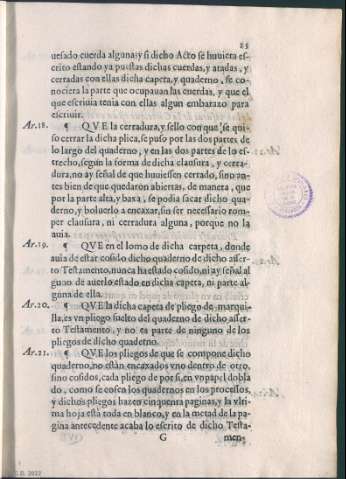 25
uesado cuerda alguna: y si dicho Acto se huuiera es-
crito estando ya puestas dichas cuerdas, y atadas, y
cerradas con ellas dicha capeta, y quaderno, se co-
nociera la parte que ocupauan las cuerdas, y que el
que escriuia tenia con ellas algun embarazo para
escriuir.
Ar.18. ¶ QVE la cerradura, y sello con que se qui-
so cerrar la dicha plica, se puso por las dos partes de
lo largo del quaderno, y en las dos partes de lo es-
trecho, según la forma de dicha clausura, y cerra-
dura, no ay señal de que huuiessen cerrado, sino an-
tes bien de que quedaron abiertas, de manera, que
por la parte alta, y baxa, se podia sacar dicho qua-
derno, y boluerlo a encaxar, sin ser necessario rom-
per clausura, ni cerradura alguna, porque no la
auia.
Ar.19. ¶ QVE en el lomo de dicha carpeta, donde
auia de estar cosido dicho quaderno de dicho asser-
to Testamento, nunca ha estado cosido, ni ay señal al
guno de auerlo estado en dicha capeta, ni parte al-
guna de ella.
Ar.20. ¶ QVE la dicha capeta de pliego de marqui-
lla, es vn pliego suelto del quaderno de dicho asser-
to Testamento, y no es parte de ninguno de los
pliegos de dicho quaderno.
Ar.21. ¶ QVE los pliegos de que se compone dicho
quaderno, no están encaxados vno dentro de otro,
sino cosidos, cada pliego de por si, en vn papel dobla
do, como se cosen los quadernos en los processos,
y dichos pliegos hazen cinquenta paginas, y la vlti-
ma hoja està toda en blanco, y en la metad de la pa-
gina antecedente acaba lo escrito de dicho Testa-
G men-